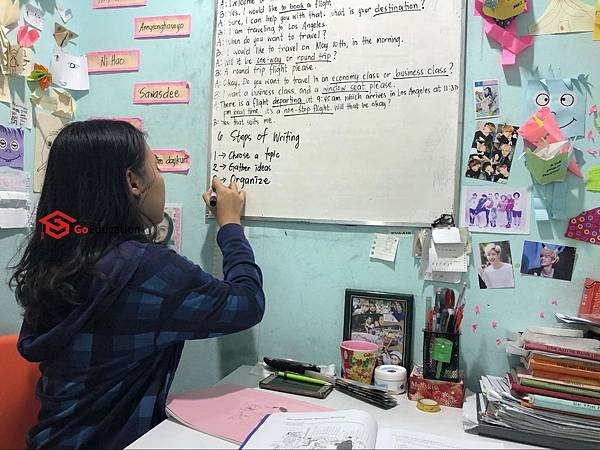 Annyeonghaseyo
Ni Hao
Sawasdee
GoEducation
B: Yes. I would like to book a flight.
A: Sure, I can help you with that. what is your destination?
B: I am traveling to Los Angeles.
A: When do you want to travel?
B: I would like to travel on May 10th, in the morning.
A: Will it be one-way or round trip?
B: A round trip flight please.
A: Okay. Do you want to travel in an economy class or business class?
B: I want a business class, and a window seat please.
A: There is a flight departing at 9:45 am which arrives in Los Angeles at 11:30
pm local time. it's a non-stop flight. Will that be okay?
B: Yes that suits me.
6 Steps of Writing
1 → Choose a topic
2 → Gather ideas
→ Organize